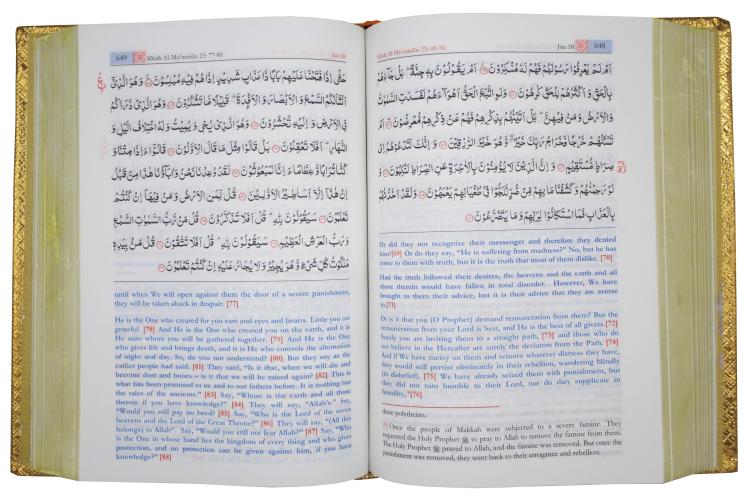 Sūrah Al-Mu'minūn 23: 69-76 Juz 18 648
اَمْ لَمْ يَعْرِفُوْا رَسُوْلَهُمْ فَهُمْ لَهٗ مُنْكِرُوْنَ اَمْ يَقُوْلُوْنَ بِهٖ جِنَّةٌ ؕ بَلْ جَآءَهُمْ
بِالْحَقِّ وَ اَكْثَرُهُمْ لِلْحَقِّ كٰرِهُوْنَ وَ لَوِ اتَّبَعَ الْحَقُّ اَهْوَآءَهُمْ لَفَسَدَتِ السَّمٰوٰتُ
وَ الْاَرْضُ وَ مَنْ فِيْهِنَّ ؕ بَلْ اَتَيْنٰهُمْ بِذِكْرِهِمْ فَهُمْ عَنْ ذِكْرِهِمْ مُّعْرِضُوْنَ اَمْ
تَسْـَٔلُهُمْ خَرْجًا فَخَرَاجُ رَبِّكَ خَيْرٌ وَّ هُوَ خَيْرُ الرّٰزِقِيْنَ وَ اِنَّكَ لَتَدْعُوْهُمْ اِلٰى
صِرَاطٍ مُّسْتَقِيْمٍ وَ اِنَّ الَّذِيْنَ لَا يُؤْمِنُوْنَ بِالْاٰخِرَةِ عَنِ الصِّرَاطِ لَنٰكِبُوْنَ وَ
لَوْ رَحِمْنٰهُمْ وَ كَشَفْنَا مَا بِهِمْ مِّنْ ضُرٍّ لَّلَجُّوْا فِيْ طُغْيَانِهِمْ يَعْمَهُوْنَ وَ لَقَدْ اَخَذْنٰهُمْ
بِالْعَذَابِ فَمَا اسْتَكَانُوْا لِرَبِّهِمْ وَ مَا يَتَضَرَّعُوْنَ
Or did they not recognize their messenger and therefore they denied
him?[69] Or do they say, "He is suffering from madness?" No, but he has
come to them with truth, but it is the truth that most of them dislike. [70]
Had the truth followed their desires, the heavens and the earth and all
those therein would have fallen in total disorder. However, We have
brought to them their advice, but it is their advice that they are averse
to.[71]
Or is it that you (O Prophet) demand remuneration from them? But the
remuneration from your Lord is best, and He is the best of all givers.[72]
Surely you are inviting them to a straight path, [73] and those who do
not believe in the Hereafter are surely the deviators from the Path. [74]
And if We have mercy on them and remove whatever distress they have,
they would still persist obstinately in their rebellion, wandering blindly
(in disbelief). [75] We have already seized them with punishment, but
they did not turn humble to their Lord, nor do they supplicate in
humility,"[76]
these polytheists.
Once the people of Makkah were subjected to a severe famine. They
requested the Holy Prophet ﷺ to pray to Allah to remove the famine from them.
The Holy Prophet ﷺ prayed to Allah, and the famine was removed. But once the
punishment was removed, they went back to their arrogance and rebellion.
649 Sūrah Al-Mu'minūn 23: 77-88 Juz 18
حَتّٰٓى اِذَا فَتَحْنَا عَلَيْهِمْ بَابًا ذَا عَذَابٍ شَدِيْدٍ اِذَا هُمْ فِيْهِ مُبْلِسُوْنَ وَ هُوَ الَّذِيْٓ
اَنْشَاَ لَكُمُ السَّمْعَ وَ الْاَبْصَارَ وَ الْاَفْـِٕدَةَ ؕ قَلِيْلًا مَّا تَشْكُرُوْنَ وَ هُوَ الَّذِيْ ذَرَاَكُمْ
فِي الْاَرْضِ وَ اِلَيْهِ تُحْشَرُوْنَ وَ هُوَ الَّذِيْ يُحْيٖ وَ يُمِيْتُ وَ لَهُ اخْتِلَافُ الَّيْلِ وَ
النَّهَارِ ؕ اَفَلَا تَعْقِلُوْنَ بَلْ قَالُوْا مِثْلَ مَا قَالَ الْاَوَّلُوْنَ قَالُوْٓا ءَاِذَا مِتْنَا وَ
كُنَّا تُرَابًا وَّ عِظَامًا ءَاِنَّا لَمَبْعُوْثُوْنَ لَقَدْ وُعِدْنَا نَحْنُ وَ اٰبَآؤُنَا هٰذَا مِنْ قَبْلُ
اِنْ هٰذَآ اِلَّآ اَسَاطِيْرُ الْاَوَّلِيْنَ قُلْ لِّمَنِ الْاَرْضُ وَ مَنْ فِيْهَآ اِنْ كُنْتُمْ
تَعْلَمُوْنَ سَيَقُوْلُوْنَ لِلّٰهِ ؕ قُلْ اَفَلَا تَذَكَّرُوْنَ قُلْ مَنْ رَّبُّ السَّمٰوٰتِ السَّبْعِ
وَ رَبُّ الْعَرْشِ الْعَظِيْمِ سَيَقُوْلُوْنَ لِلّٰهِ ؕ قُلْ اَفَلَا تَتَّقُوْنَ قُلْ مَنْۢ بِيَدِهٖ
مَلَكُوْتُ كُلِّ شَيْءٍ وَّ هُوَ يُجِيْرُ وَ لَا يُجَارُ عَلَيْهِ اِنْ كُنْتُمْ تَعْلَمُوْنَ
until when We will open against them the door of a severe punishment,
they will be taken aback in despair. [77]
He is the One who created for you ears and eyes and hearts. Little you are
grateful. [78] And He is the One who created you on the earth, and it is
He unto whom you will be gathered together. [79] And He is the One
who gives life and brings death, and it is He who controls the alternation
of night and day. So, do you not understand? [80] But they say as the
earlier people had said. [81] They said, "Is it that, when we will die and
become dust and bones – is it that we will be raised again? [82] This is
what has been promised to us and to our fathers before. It is nothing but
the tales of the ancients." [83] Say, "Whose is the earth and all those
therein if you have knowledge?" [84] They will say, "Allah's." Say,
"Would you still pay no heed? [85] Say, "Who is the Lord of the seven
heavens and the Lord of the Great Throne?" [86] They will say, "(All this
belongs) to Allah". Say, "Would you still not fear Allah?" [87] Say, "Who
is the One in whose hand lies the kingdom of every thing and who gives
protection, and no protection can be given against him, if you have
knowledge?" [88]